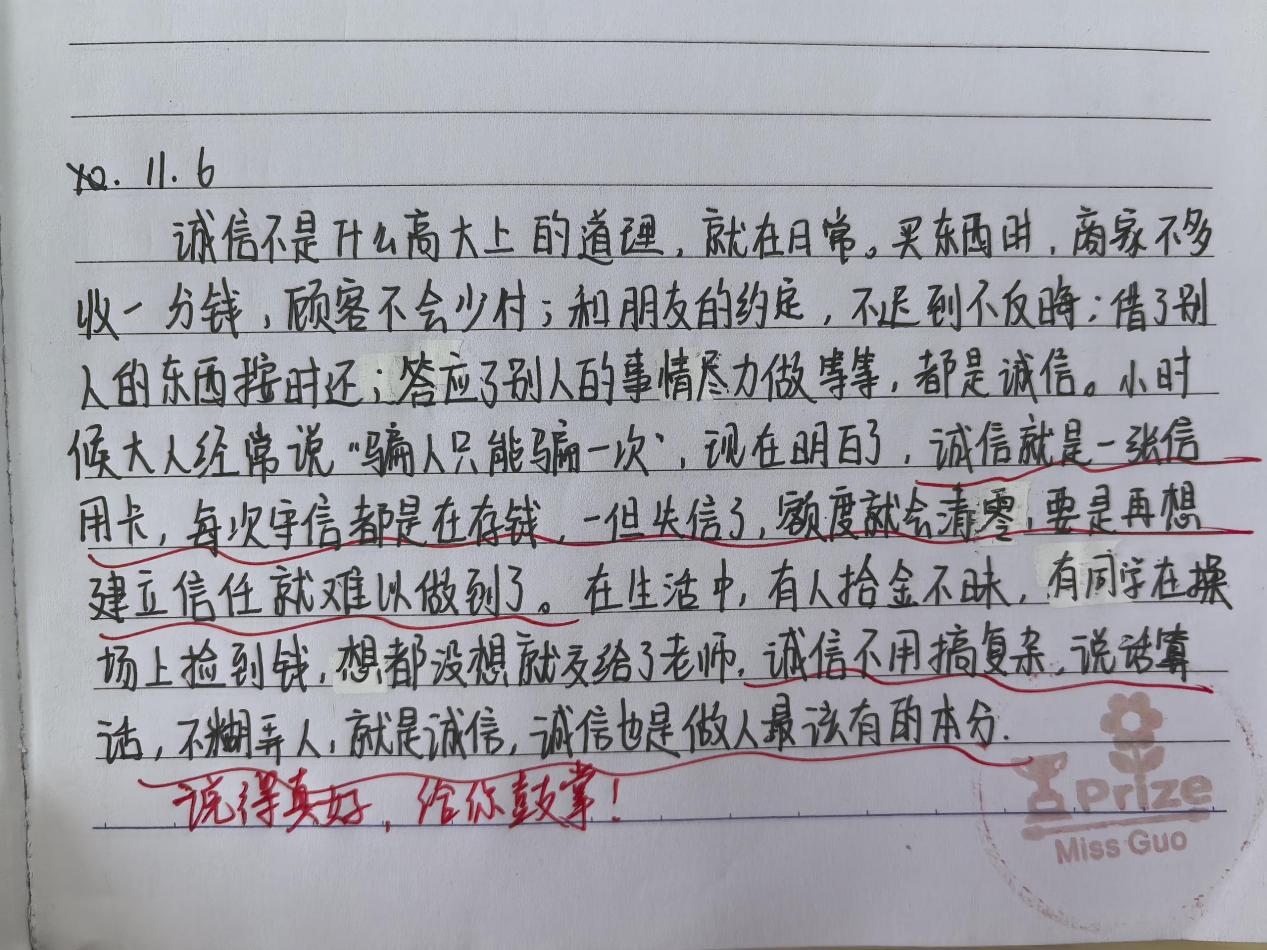 11.6
诚信不是什么高大上的道理，就在日常。买东西时，商家不多
收一分钱，顾客不会少付；和朋友的约定，不迟到不反悔；借了别
人的东西按时还；答应了别人的事情尽力做等等，都是诚信。小时
候大人经常说“骗人只能骗一次”，现在明白了，诚信就是一张信
用卡，每次守信都是在存钱，一但失信了，额度就会清零，要是再想
建立信任就难以做到了。在生活中，有人拾金不昧，有同学在操
场上捡到钱，想都没想就交给了老师。诚信不用搞复杂，说话算
话，不糊弄人，就是诚信，诚信也是做人最该有的本分.
说得真好，给你鼓掌！
Prize
Miss Guo